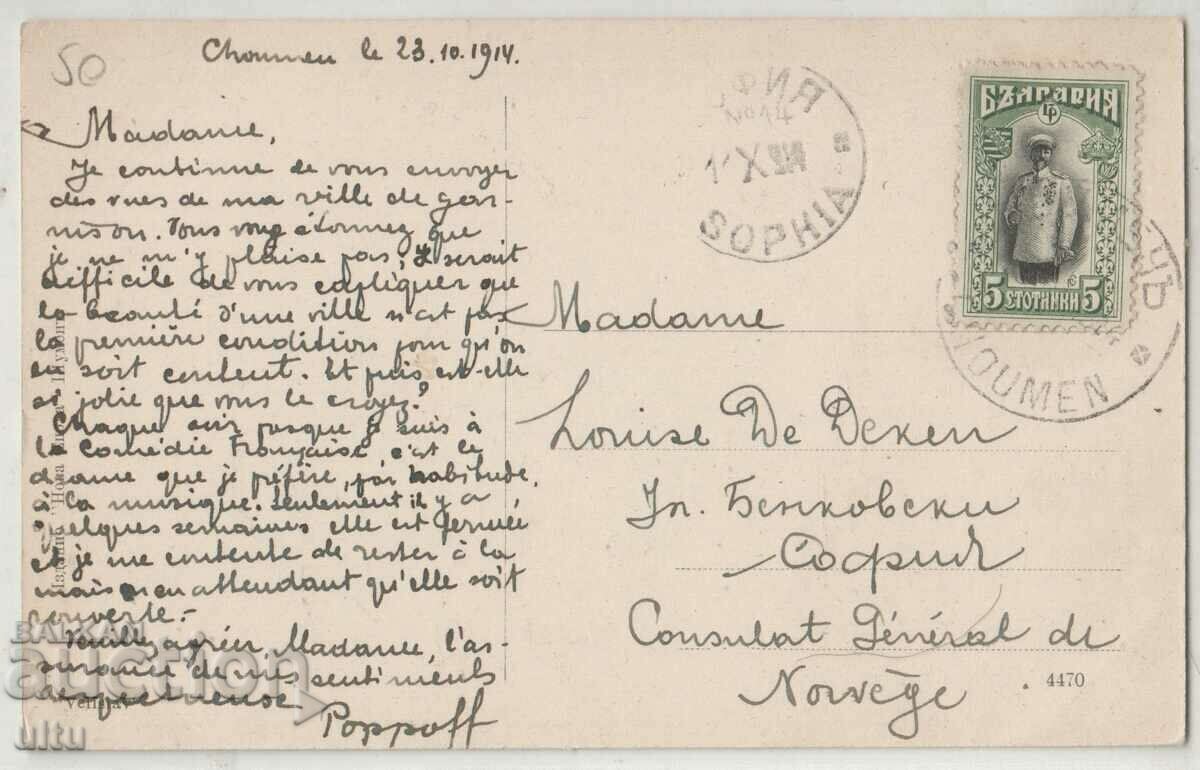 50
Choumen le 23.10.1914.
Madame,
Je continue de vous envoyer
des vues de ma ville de gar-
nison. Vous vous étonnez que
je ne m'y plaise pas; Il serait
difficile de vous expliquer que
la beauté d'une ville n'est pas
la première condition pour qu'on
en soit content. Et puis est-elle
si jolie que vous le croyez?
Chaque soir presque je suis à
la Comédie Française c'est le
drame que je préfère, par habitude,
à la musique. Seulement il y a
quelques semaines elle est fermée
et je me contente de rester à la
maison en attendant qu'elle soit
rouverte.-
Veuillez agréer, Madame, l'as-
surance de mes sentiments
respectueuse
Poppoff
ФИЯ
SOPHIA
БЪЛГАРИЯ
5 СТОТИНКИ 5
CHOUMEN
Madame
Louise De Deken
Ул. Бенковски
София
Consulat Général de
Norvège
4470
БАЛКАН
auction
ultu